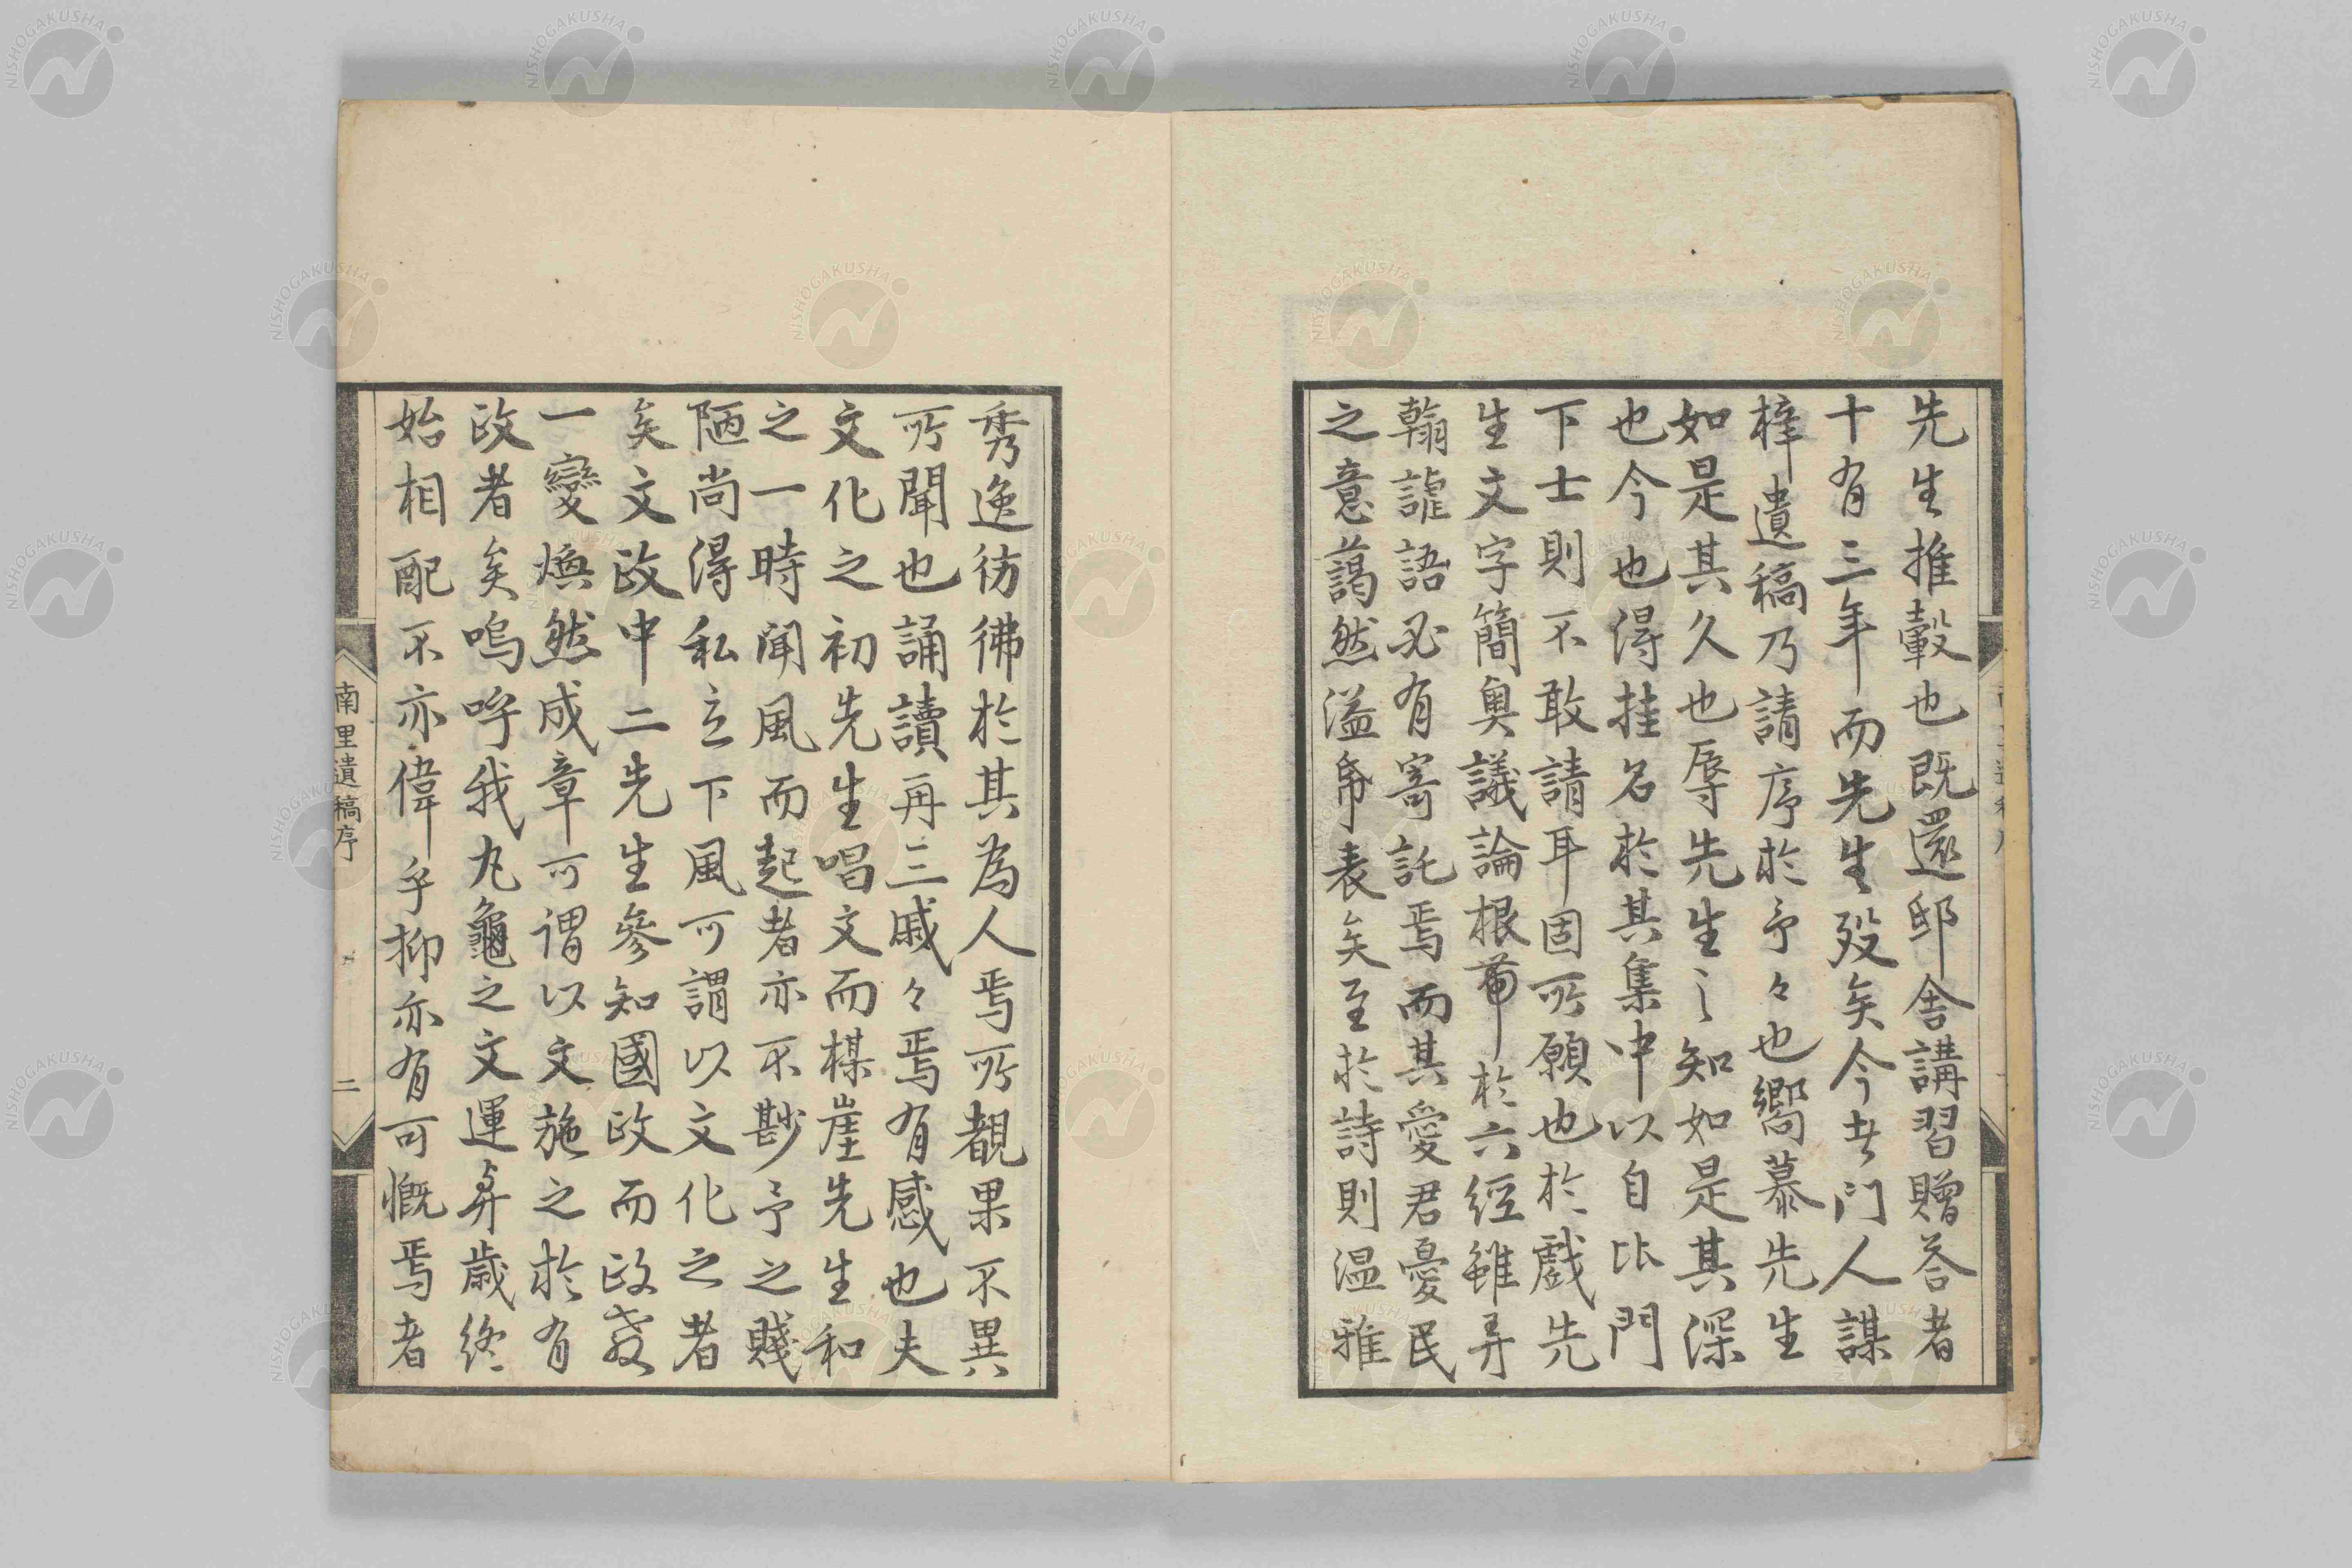 先生推轂也既還邸舍講習贈荅者
十有三年而先生歿矣今玆門人謀
梓遺稿乃請序於予々也嚮慕先生
如是其久也辱先生之知如是其深
也今也得挂名於其集中以自比門
下士則不敢請耳固所願也於戲先
生文字簡奥議論根蒂於六經雖弄
翰謔語必有寄託焉而其愛君憂民
之意藹然溢帋表矣至於詩則温雅
秀逸彷彿於其為人焉所覩果不異
所聞也誦讀再三戚々焉有感也夫
文化之初先生唱文而楳崖先生和
之一時聞風而起者亦不尠予之賤
陋尚得私立下風可謂以文化之者
矣文政中二先生參知國政而政教
一變煥然成章可謂以文施之於有
政者矣嗚呼我丸龜之文運與歳終
始相配不亦偉乎抑亦有可慨焉者
南里遺稿序
二
NISHOGAKUSHA